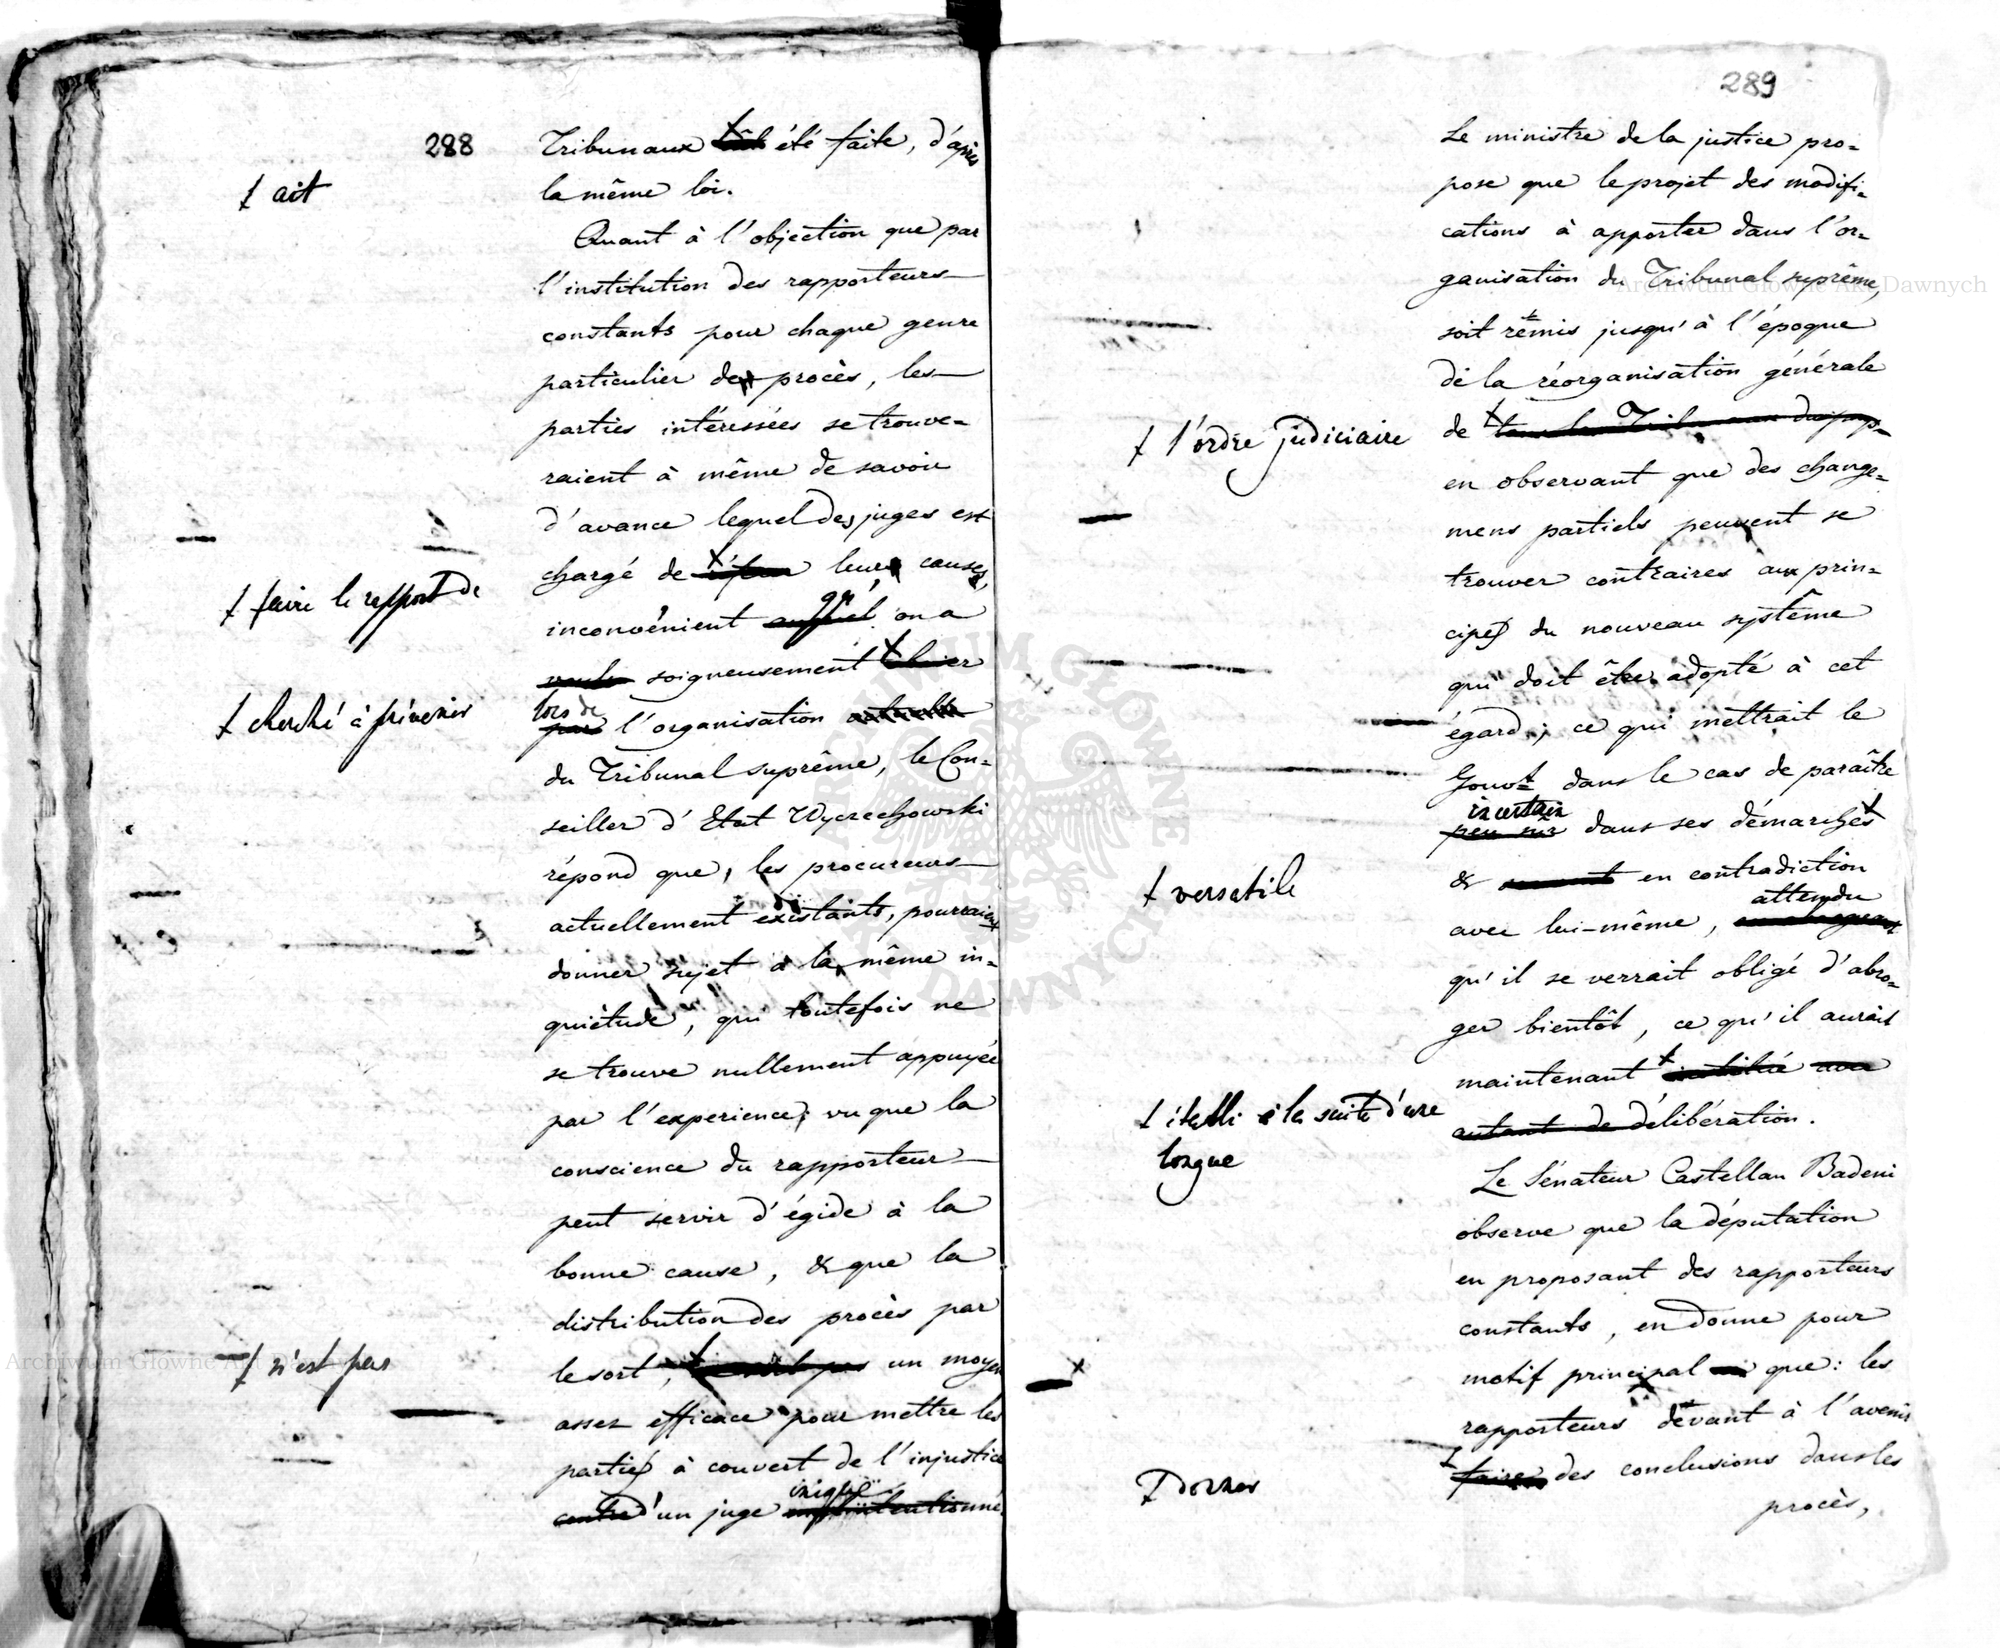 288
Tribunaux été faite, d'après
ƚ ait
la même loi.
Quant à l'objection que par
l'institution des rapporteurs
constants pour chaque genre
particulier de procès, les
parties intéressées se trouve=
raient à même de savoir
d'avance lequel des juges est
chargé de leur cause,
ƚ faire le rapport de
inconvénient qu' on a
soigneusement
ƚ cherché à prévenir
lors de
par l'organisation actuelle
du Tribunal suprême, le Con=
seiller d'Etat Wyczechowski
répond que, les procureurs
actuellement existants, pourraient
donner sujet à la même in=
quiétude, qui toutefois ne
se trouve nullement appuyée
par l'experience; vu que la
conscience du rapporteur
peut servir d'égide à la
bonne cause, & que la
distribution des procès par
le sort, un moyen
ƚ n'est pas
assez efficace pour mettre les
parties à couvert de l'injustice
inique
contre d'un juge intentionné.
289
Le ministre de la justice pro=
pose que le projet des modifi=
cations à apporter dans l'or=
ganisation du Tribunal suprême,
soit remis jusqu'à l'époque
de la réorganisation générale
de
ƚ l'ordre judiciaire
en observant que des change=
mens partiels peuvent se
trouver contraires aux prin=
cipes du nouveau systême
qui doit être adopté à cet
égard; ce qui mettrait le
Gouvt dans le cas de paraître
incertain
peu sûr dans ses démarches
& en contradiction
ƚ versatile
attendu
avec lui-même,
qu'il se verrait obligé d'abro=
ger bientôt, ce qu'il aurait
maintenant
ƚ établi à la suite d'une
longue
autant de délibération.
Le Sénateur Castellan Badeni
observe que la députation
en proposant des rapporteurs
constants, en donne pour
motif principal que: les
rapporteurs devant à l'avenir
faire des conclusions dans les
ƚ donner
procès,
Archiwum Główne Akt Dawnych